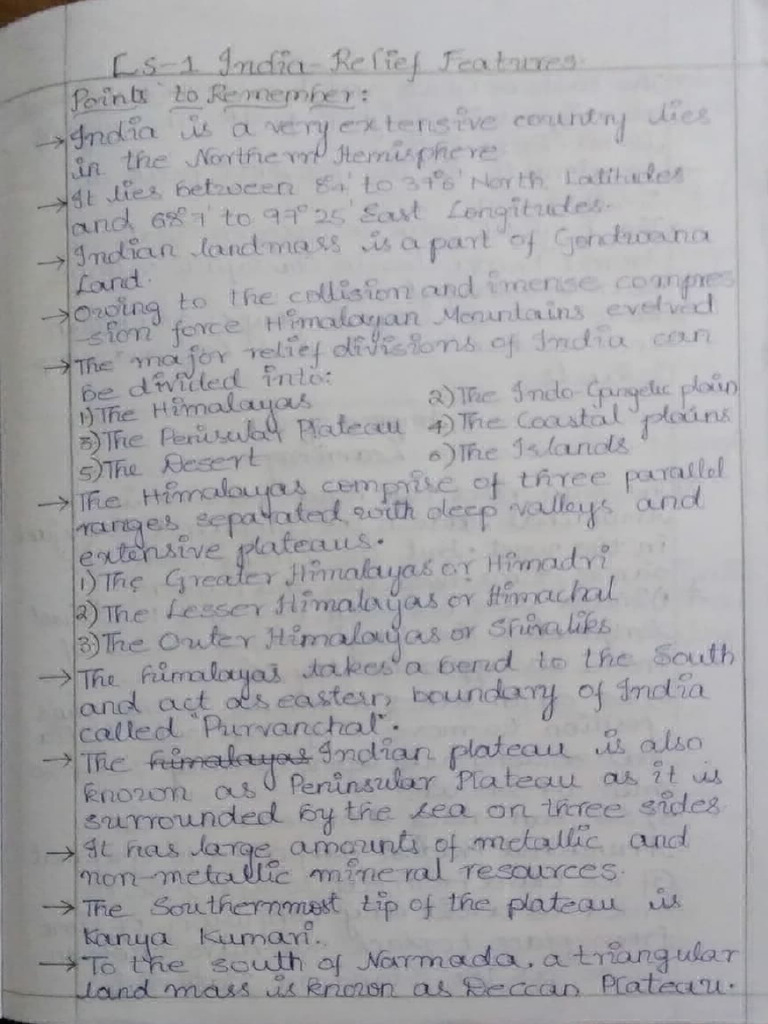 Ls-1 India-Relief Features.
Points to Remember:
→ India is a very extensive country lies
in the Northern Hemisphere
→ It lies between 8°4' to 37°6' North Latitudes
and 68°7' to 97°25' East Longitudes.
→ Indian landmass is a part of Gondwana
Land.
→ Owing to the collision and imense compres
-sion force Himalayan Mountains evolved
→ The major relief divisions of India can
be divided into:
1) The Himalayas 2) The Indo-Gangetic plain
3) The Penisular Plateau 4) The Coastal plains
5) The Desert 6) The Islands
→ The Himalayas comprise of three parallel
ranges separated with deep valleys and
extensive plateaus.
1) The Greater Himalayas or Himadri
2) The Lesser Himalayas or Himachal
3) The Outer Himalayas or Shivaliks
→ The himalayas takes a bend to the South
and act as eastern boundary of India
called "Purvanchal".
→ The himalayas Indian plateau is also
known as Peninsular Plateau as it is
surrounded by the sea on three sides
→ It has large amounts of metallic and
non-metallic mineral resources.
→ The Southernmost tip of the plateau is
Kanya Kumari.
→ To the south of Narmada, a triangular
land mass is known as Deccan Plateau.